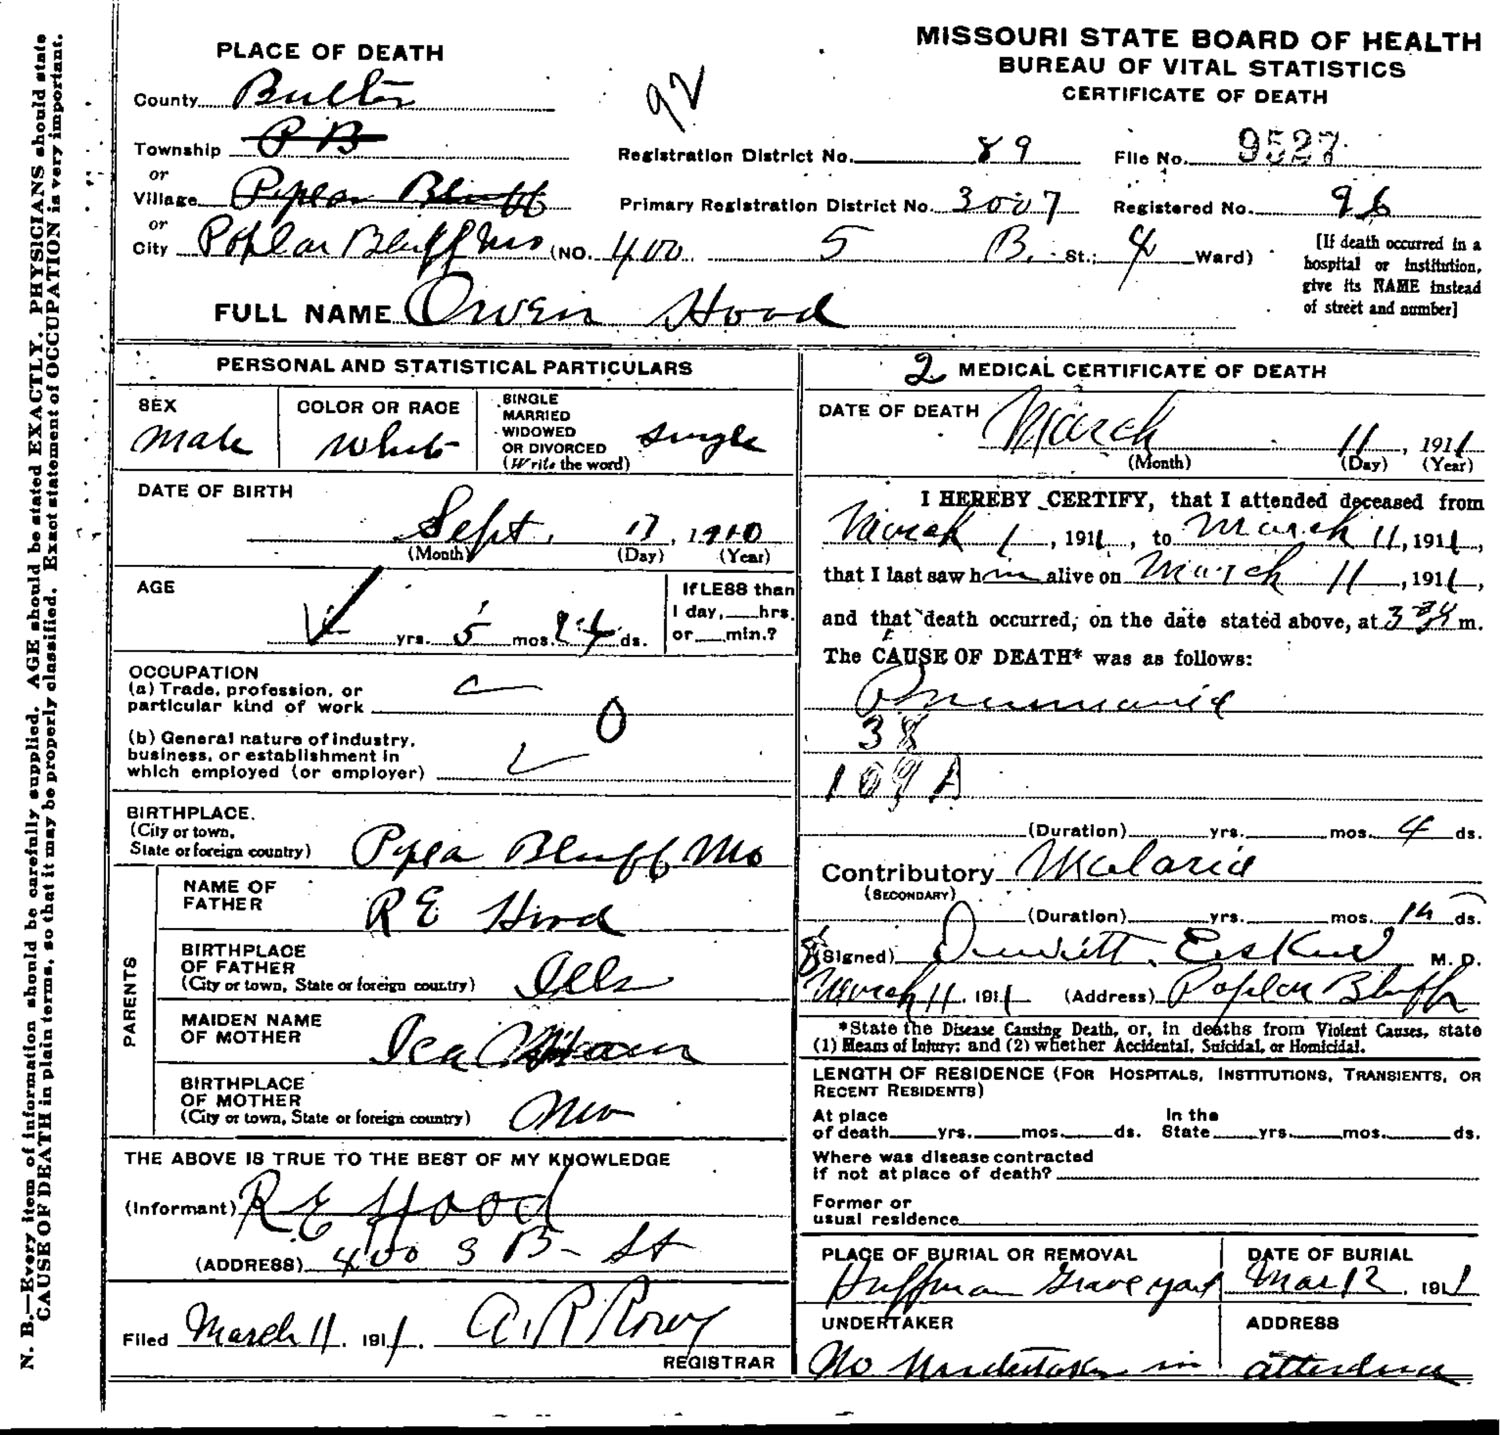 MISSOURI STATE BOARD OF HEALTH
BUREAU OF VITAL STATISTICS
CERTIFICATE OF DEATH
PLACE OF DEATH
County Butler
Township P B
or
Village Poplar Bluff
or
City Poplar Bluff Mo (NO. 400 S B. St.; 4 Ward)
92
Registration District No. 89 File No. 9527
Primary Registration District No. 3007 Registered No. 96
[If death occurred in a
hospital or institution,
give its NAME instead
of street and number]
FULL NAME Owen Hood
PERSONAL AND STATISTICAL PARTICULARS
SEX
Male
COLOR OR RACE
White
SINGLE
MARRIED
WIDOWED
OR DIVORCED
(Write the word)
Single
DATE OF BIRTH
Sept. 17, 1910
(Month) (Day) (Year)
AGE
yrs. 5 mos. 24 ds.
If LESS than
1 day, hrs.
or min.?
OCCUPATION
(a) Trade, profession, or
particular kind of work
0
(b) General nature of industry,
business, or establishment in
which employed (or employer)
BIRTHPLACE.
(City or town,
State or foreign country)
Popla Bluff Mo
PARENTS
NAME OF
FATHER
R E Hood
BIRTHPLACE
OF FATHER
(City or town, State or foreign country)
Ills
MAIDEN NAME
OF MOTHER
Ica
BIRTHPLACE
OF MOTHER
(City or town, State or foreign country)
Mo
THE ABOVE IS TRUE TO THE BEST OF MY KNOWLEDGE
(Informant) R E Hood
(ADDRESS) 400 S B - St
Filed March 11. 1911. A. R. Rowy
REGISTRAR
2 MEDICAL CERTIFICATE OF DEATH
DATE OF DEATH March 11, 1911
(Month) (Day) (Year)
I HEREBY CERTIFY, that I attended deceased from
March 1, 1911, to March 11, 1911,
that I last saw him alive on March 11, 1911,
and that death occurred, on the date stated above, at 3 m.
The CAUSE OF DEATH* was as follows:
Pneumonia
38
109 A
(Duration) yrs. mos. 4 ds.
Contributory Malaria
(SECONDARY)
(Duration) yrs. mos. 14 ds.
(Signed) Dewitt Eskew M. D.
March 11. 1911 (Address) Poplar Bluff
*State the Disease Causing Death, or, in deaths from Violent Causes, state
(1) Means of Injury; and (2) whether Accidental, Suicidal, or Homicidal.
LENGTH OF RESIDENCE (FOR HOSPITALS, INSTITUTIONS, TRANSIENTS, OR
RECENT RESIDENTS)
At place
of death yrs. mos. ds.
In the
State yrs. mos. ds.
Where was disease contracted
if not at place of death?
Former or
usual residence
PLACE OF BURIAL OR REMOVAL
Huffman Graveyard
DATE OF BURIAL
Mar 12, 1911
UNDERTAKER
No Undertaker in
ADDRESS
attendence
N. B.—Every item of information should be carefully supplied. AGE should be stated EXACTLY. PHYSICIANS should state
CAUSE OF DEATH in plain terms, so that it may be properly classified. Exact statement of OCCUPATION is very important.